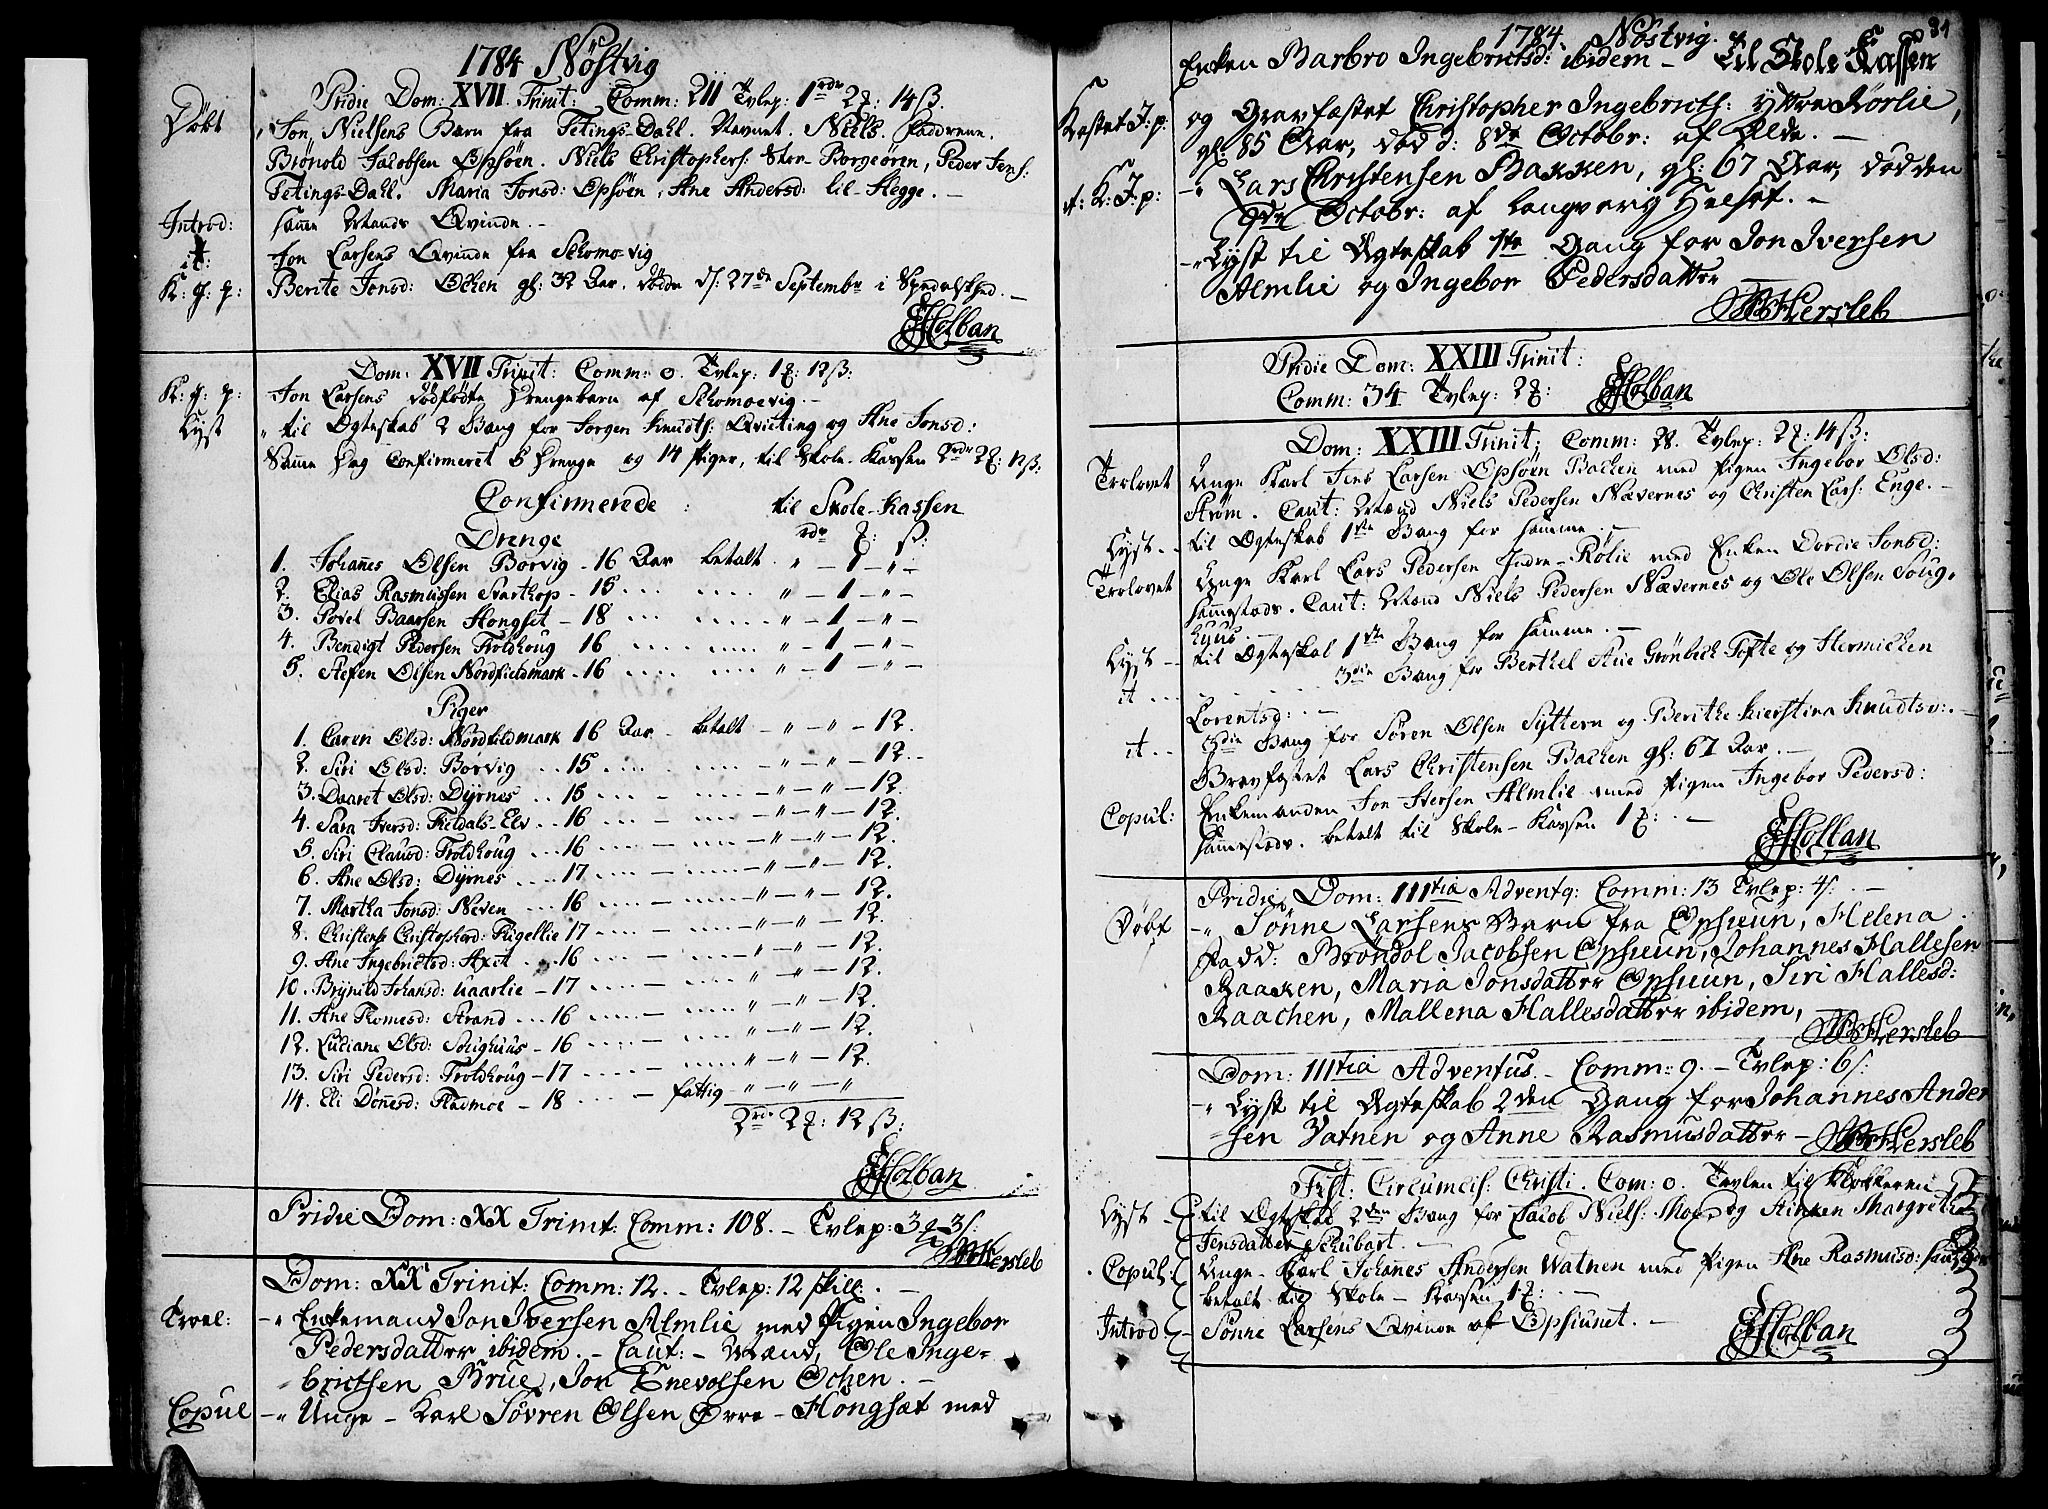 1784 Nöstvig
Pridie Dom: XVII Trinit: Comm: 211 Tvlep: 1rdr 2ꝗ: 14 ß.
Döbt
Jon Nielsens Barn fra Tetings-Dahl. Nevnet. Niels. Faddrene.
Brönold Jacobsen Opsöen. Niels Christophers: Stor-Borgeören, Peder Jens:
Tetings-Dahl. Maria Jonsd: Opsöen, Ane Andersd: lil-Hegge. –
Introd:
samme Mands Qvinde. –
it:
Jon Larsens Qvinde fra Skomovig
K: J: p:
Berite Jonsd: Ochen gl: 32 Aar. døde d: 27de Septembr i Spedalskhed. –
Holban
Dom: XVII Trinit: Comm: 0. Tvlep: 1ꝗ: 12 ß:
K: J: p:
Jon Larsens dödfödte Drengebarn af Skomoevig. –
Lyst
" til Ægteskab 2 Gang for Jörgen Knudts: Qviting og Ane Jonsd:
Samme Dag Confirmeret 5 Drenge og 14 Piger, til Skole-Kassen 2rdr 2ꝗ: 12 ß.
Confirmerede : til Skole-Kassen
Drenge rdr ꝗ: ß:
1. Johannes Olsen Borvig – 16 Aar betalt " – 1 – " –
2. Elias Rasmussen Starthop – 15 ... ..... " – 1 – " –
3. Povel Baarsen Hongset – 18 ... ..... " – 1 – " –
4. Bendigt Pedersen Troldhoug 16 ..... ..... " – 1 – " –
5. Stefen Olsen Nordfieldmark – 16 .... ..... " – 1 – " –
Piger
1. Caren Olsd: Nordfieldmark 16 Aar – betalt – " – " – 12.
2. Siri Olsd: Borvig ... 15 ..... ..... – " – " – 12. –
3. Daaret Olsd: Dyrnes .. 15 .... – ..... – " – " – 12.
4. Sara Iversd: Fieldals-Elv .. 16 .... – .... – " – " – 12.
5. Siri Clausd: Troldhoug ... 16 ..... – .... – " – " – 12.
6. Ane Olsd: Dyrnes .... 17 .... – ..... – " – " – 12.
7. Martha Jonsd: Neven ... 16 .... – ..... – " – " – 12.
8. Christense Christopherd: Rigellie 17 .... – ..... " – " – 12.
9. Ane Ingebrictsd: Axet ... 16 ..... – ..... " – " – 12.
10. Brynild Johansd: Uaarlie – 17 ..... – ..... " – " – 12.
11. Ane Thomesd: Strand ... 16 ..... – ..... " – " – 12.
12. Luciane Olsd: Soughuus – 16 ..... – ..... " – " – 12.
13. Siri Pedersd: Troldhoug – 17 ..... – ..... " – " – 12.
14. Eli Dönesd: Fladmoe – 18 .... – fattig " – " – "
2rdr 2ꝗ: 12 ß:
Holban
Pridie Dom: XX Trinit: Comm: 108. – Tvlep: 3ꝗ 3ß:
Hersleb
Dom: XX Trinit: Comm: 12. – Tvlep: 12 skill: . –
Trvl:
–" Enkemand Jon Iversen Almlie med Pigen Ingebor
Pedersdatter ibidem. – Caut: – Mænd, Ole Inge=
brictsen Brue, Jon Enevolsen Ochen. –
Copul
–" Unge – Karl Sövren Olsen Övre – Hongsæt med
1784. Nöstvig. 31
Enken Barbro Ingebrictsd: ibidem – Til Skole Kassen
Kastet J: p:
og Gravfæstet Christopher Ingebricts: yttre Rörlie,
gl: 85 Aar, död d: 8de Octobr: af Ælde. –
it: K: J: p:
–" Lars Christensen Bakken, gl: 67 Aar, död den
9de Octobr: af langvarig Helsot. –
–" Lyst til Ægteskab 1ste Gang for Jon Iversen
Almlie og Ingebor Pedersdatter
Hersleb
Pridie Dom: XXIII Trinit:
Comm: 34 Tvlep: 2ꝗ: Holban
Dom: XXIII Trinit: Comm: 28. Tvlep: 2ꝗ: 14 ß:
Trolovet
Unge Karl Jens Larsen Opsöen Bachen med Pigen Ingebor Olsd:
Ström. Caut: Mænd Niels Pedersen Nævernes og Christen Lars: Enge. –
Lyst. –
til Ægteskab 1ste Gang for samme. –
Trolovet
Unge Karl Lars Pedersen Indre-Rölie med Enken Dordie Jonsd:
sammestæds. Caut: Mænd Niels Pedersen Nævernes og Ole Olsen Soug-
huus. –
Lyst –
til Ægteskab 1ste Gang for samme. –
it ...
3die Gang for Berthel Aüe Grönbech Tofte og Hermichen
Lorentsd: . –
it. .
3die Gang for Sören Olsen Syttern og Berithe Kierstina Knudtsd: . –
Gravfæstet Lars Christensen Bachen gl: 67 Aar. –
Copul:
Enkemanden Jon Iversen Almlie med Pigen Ingebor Pedersd:
sammestæds. betalt til Skole-Kassen 1ꝗ: . –
Holban
Pridie Dom: IIItia Adventq: Comm: 13 Tvlep: 4ß: . –
Döbt
–" Sönne Larsens Barn fra Opsiuun, Helena
Fadd: Bröndol Jacobsen Opsiuun, Johannes Hallesen
Baaken, Maria Jonsdatter Opsiuun, Siri Hallesd:
Raachen, Mallena Hallesdatter ibidem,
Hersleb
Dom: IIItia Adventus. – Comm: 9. – Tvlep: 6ß:
–" Lyst til Ægteskab 2den Gang for Johannes Ander
=sen Vatnen og Anne Rasmusdatter – Hersleb
Fest: Circumcis: Christi. Com: 0. Tavlen til Klokkeren
Lyst –
til Ægteskab 2den Gang for Jacob Niels: Moe og Stinken Margrethe
Jensdatter Schubart. –
Copul:
Unge-Karl Johannes Andersen Watnen med Pigen Ane Rasmusd:
betalt til Skole-Kassen 1ꝗ: . –
Introd: –
Sönne Larsens Qvinde af Opsiunet. –
Holban